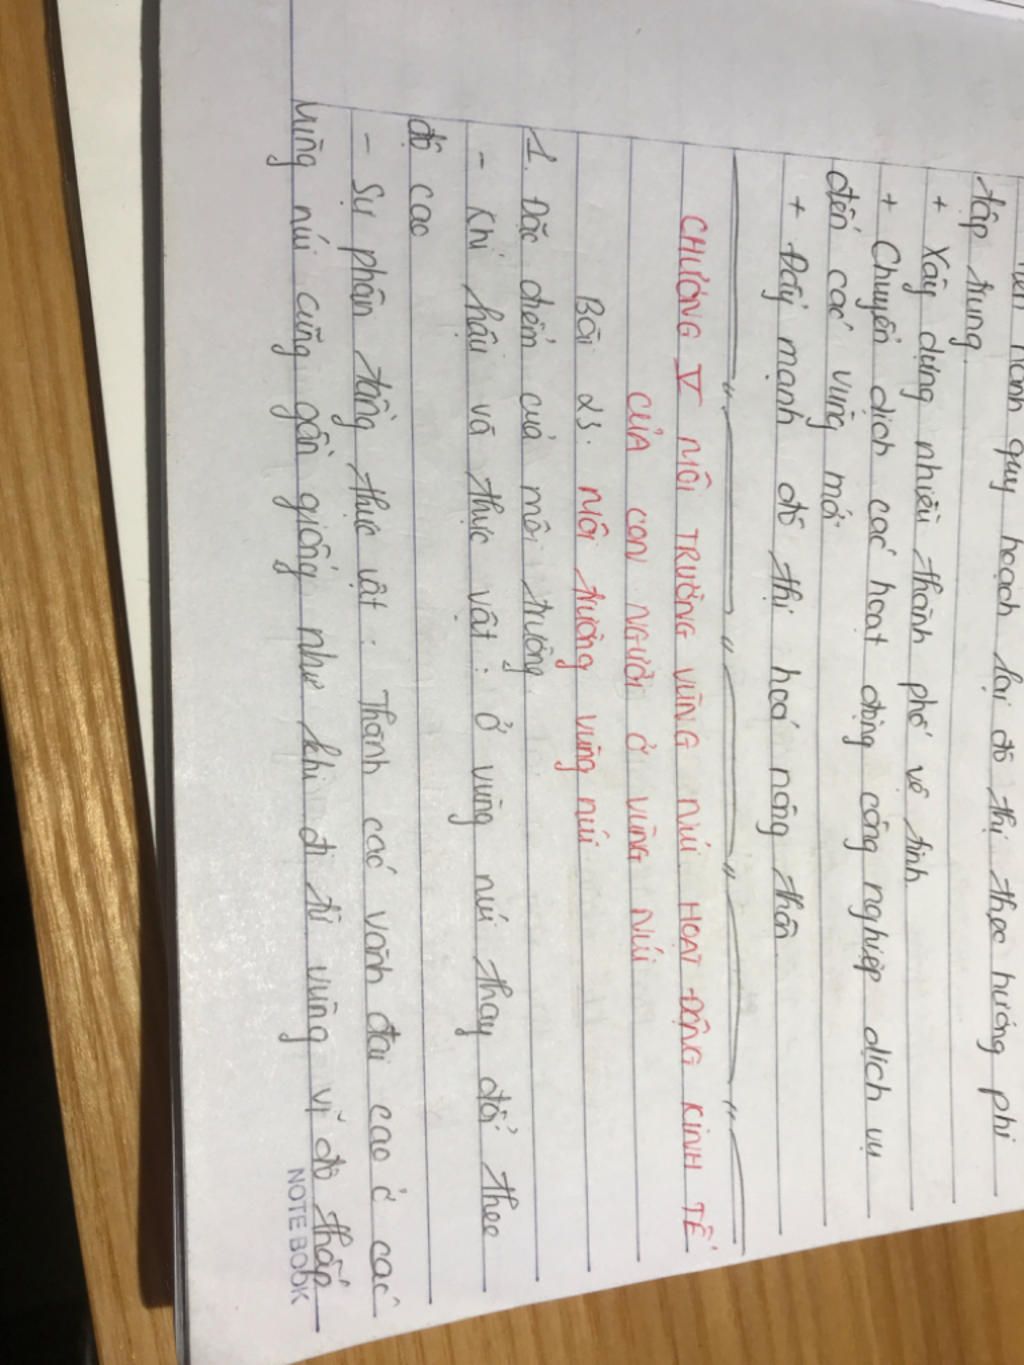 hành quy hoạch lại đô thị theo hướng phi
tập trung
+ Xây dựng nhiều thành phố vệ tinh
+ Chuyển dịch các hoạt động công nghiệp dịch vụ
đến các vùng mới
+ Đẩy mạnh đô thị hoá nông thôn
CHƯƠNG V MÔI TRƯỜNG VÙNG NÚI HOẠT ĐỘNG KINH TẾ
CỦA CON NGƯỜI Ở VÙNG NÚI
Bài 23. Môi trường vùng núi
1. Đặc điểm của môi trường
- Khí hậu và thực vật: Ở vùng núi thay đổi theo
độ cao
- Sự phân tầng thực vật: Thành các vành đai cao ở các
vùng núi cũng gần giống như khi đi từ vùng vĩ độ thấp
NOTEBOOK